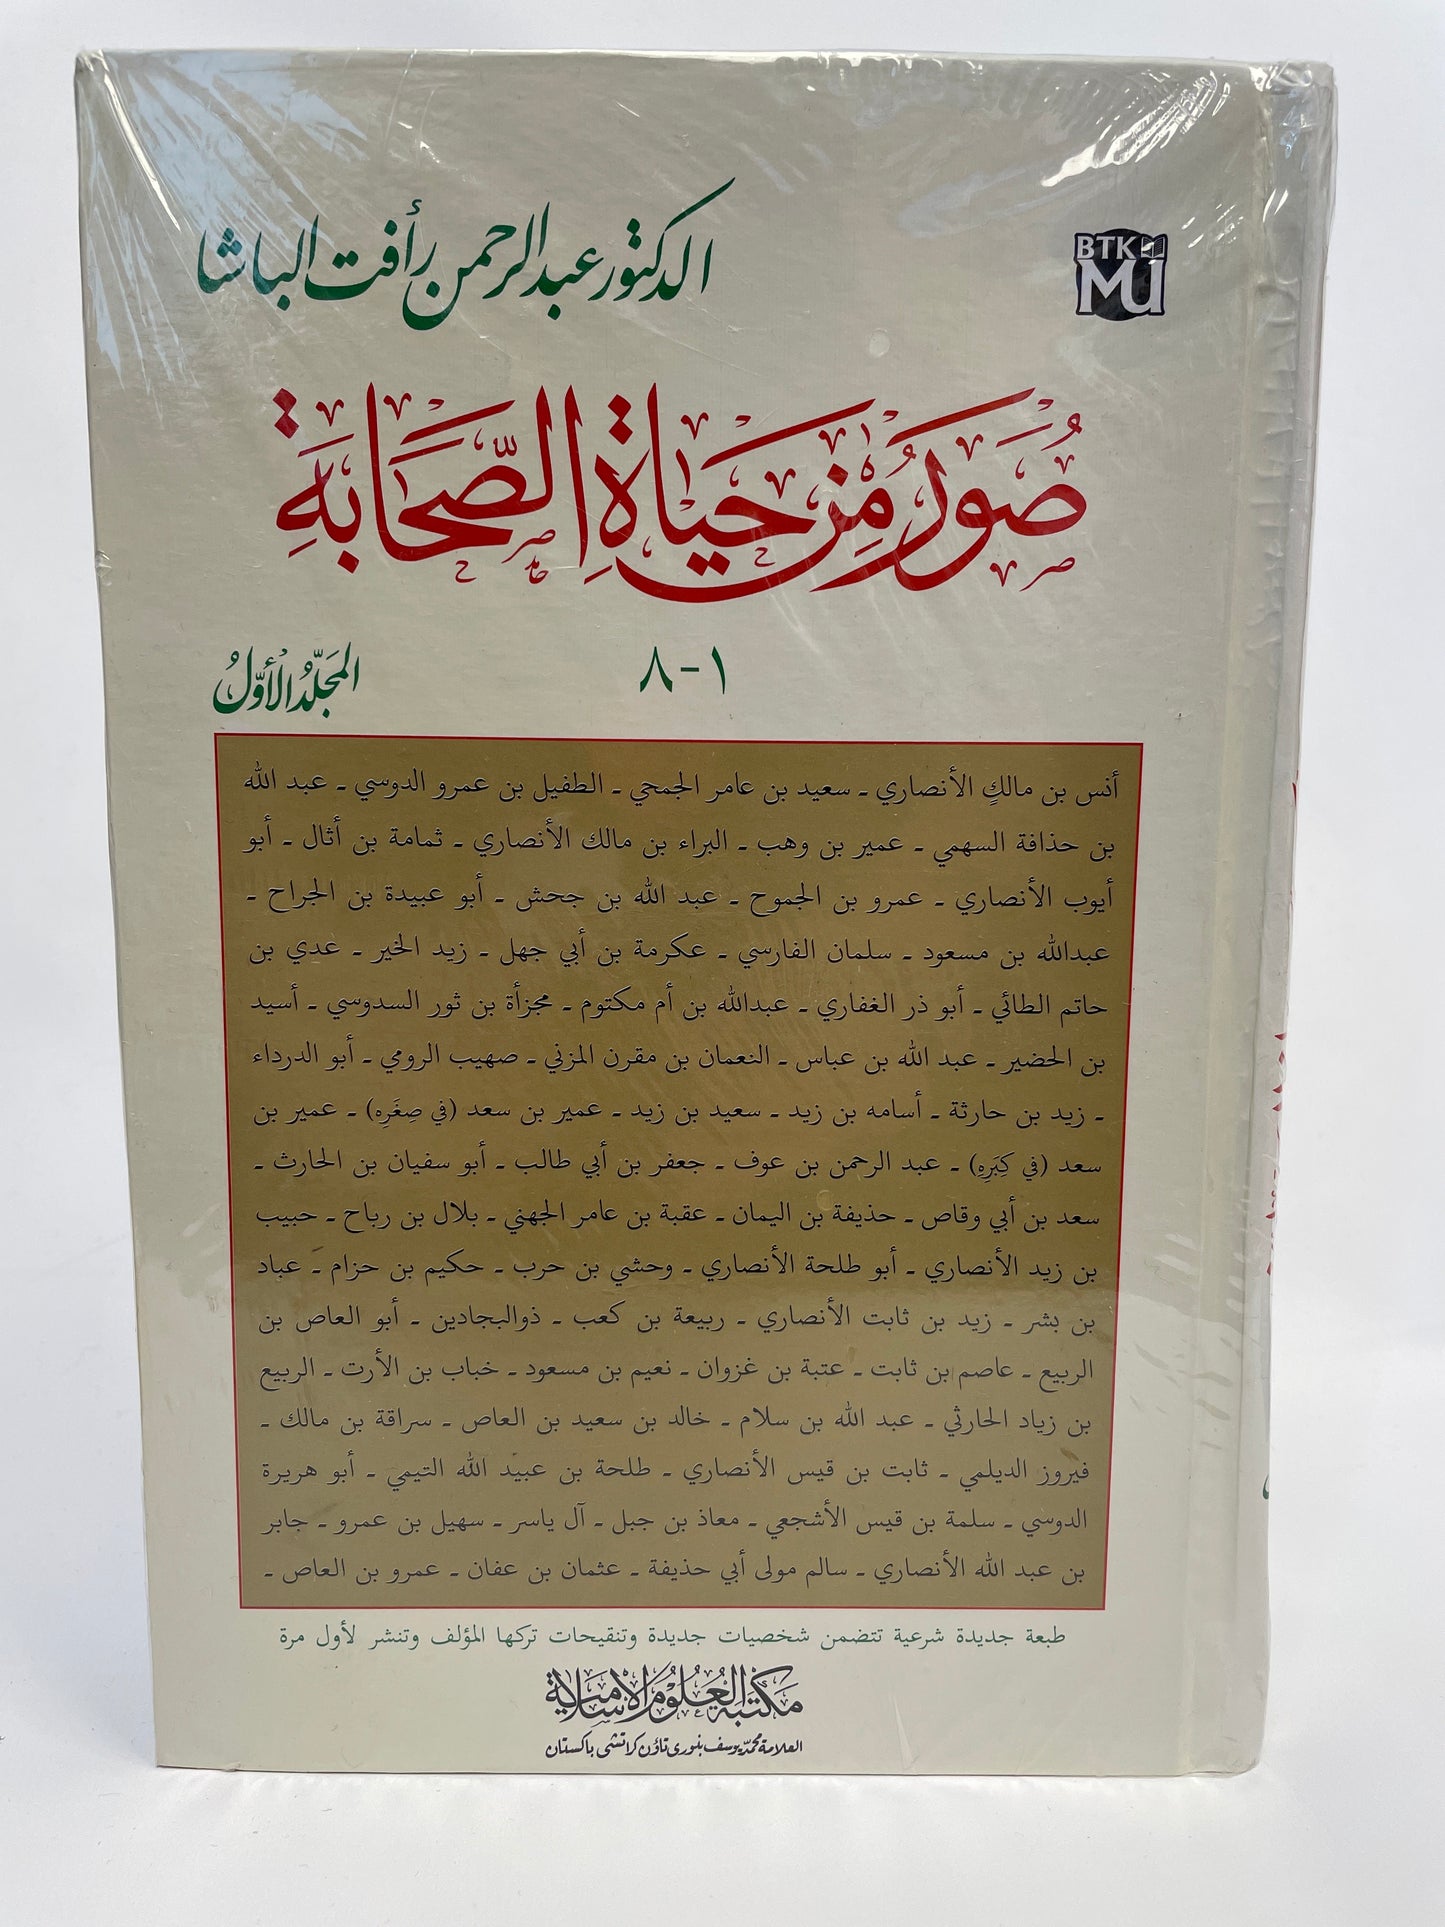 الدكتور عبد الرحمن رأفت الباشا
BTK
MU
صُوَرٌ مِنْ حَيَاةِ الصَّحَابَةِ
١-٨
المجَلَّدُ الأوَّلُ
أنس بن مالكٍ الأنصاري ـ سعيد بن عامر الجمحي ـ الطفيل بن عمرو الدوسي ـ عبد الله
بن حذافة السهمي ـ عمير بن وهب ـ البراء بن مالك الأنصاري ـ ثمامة بن أثال ـ أبو
أيوب الأنصاري ـ عمرو بن الجموح ـ عبد الله بن جحش ـ أبو عبيدة بن الجراح ـ
عبدالله بن مسعود ـ سلمان الفارسي ـ عكرمة بن أبي جهل ـ زيد الخير ـ عدي بن
حاتم الطائي ـ أبو ذر الغفاري ـ عبدالله بن أم مكتوم ـ مجزأة بن ثور السدوسي ـ أسيد
بن الحضير ـ عبد الله بن عباس ـ النعمان بن مقرن المزني ـ صهيب الرومي ـ أبو الدرداء
ـ زيد بن حارثة ـ أسامه بن زيد ـ سعيد بن زيد ـ عمير بن سعد (في صِغَرِه) ـ عمير بن
سعد (في كِبَرِهِ) ـ عبد الرحمن بن عوف ـ جعفر بن أبي طالب ـ أبو سفيان بن الحارث ـ
سعد بن أبي وقاص ـ حذيفة بن اليمان ـ عقبة بن عامر الجهني ـ بلال بن رباح ـ حبيب
بن زيد الأنصاري ـ أبو طلحة الأنصاري ـ وحشي بن حرب ـ حكيم بن حزام ـ عباد
بن بشر ـ زيد بن ثابت الأنصاري ـ ربيعة بن كعب ـ ذوالبجادين ـ أبو العاص بن
الربيع ـ عاصم بن ثابت ـ عتبة بن غزوان ـ نعيم بن مسعود ـ خباب بن الأرت ـ الربيع
بن زياد الحارثي ـ عبد الله بن سلام ـ خالد بن سعيد بن العاص ـ سراقة بن مالك ـ
فيروز الديلمي ـ ثابت بن قيس الأنصاري ـ طلحة بن عبيد الله التيمي ـ أبو هريرة
الدوسي ـ سلمة بن قيس الأشجعي ـ معاذ بن جبل ـ آل ياسر ـ سهيل بن عمرو ـ جابر
بن عبد الله الأنصاري ـ سالم مولى أبي حذيفة ـ عثمان بن عفان ـ عمرو بن العاص ـ
طبعة جديدة شرعية تتضمن شخصيات جديدة وتنقيحات تركها المؤلف وتنشر لأول مرة
مكتبة العلوم الإسلامية
العلامة محمد يوسف بنوري تاؤن كراتشي باكستان